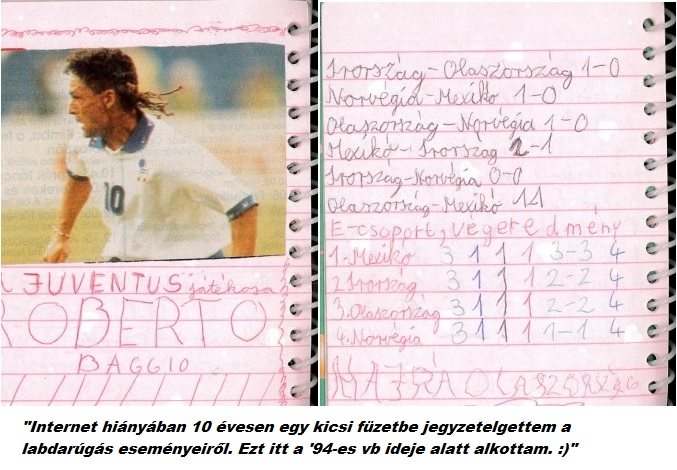 10
A JUVENTUS játékosa
ROBERTO
BAGGIO
Írország-Olaszország 1-0
Norvégia-Mexikó 1-0
Olaszország-Norvégia 1-0
Mexikó-Írország 2-1
Írország-Norvégia 0-0
Olaszország-Mexikó 1-1
E-csoport, végeredmény
1.Mexikó 3 1 1 1 3-3 4
2.Írország 3 1 1 1 2-2 4
3.Olaszország 3 1 1 1 2-2 4
4.Norvégia 3 1 1 1 1-1 4
HAJRÁ OLASZORSZÁG
"Internet hiányában 10 évesen egy kicsi füzetbe jegyzetelgettem a
labdarúgás eseményeiről. Ezt itt a '94-es vb ideje alatt alkottam. :)"